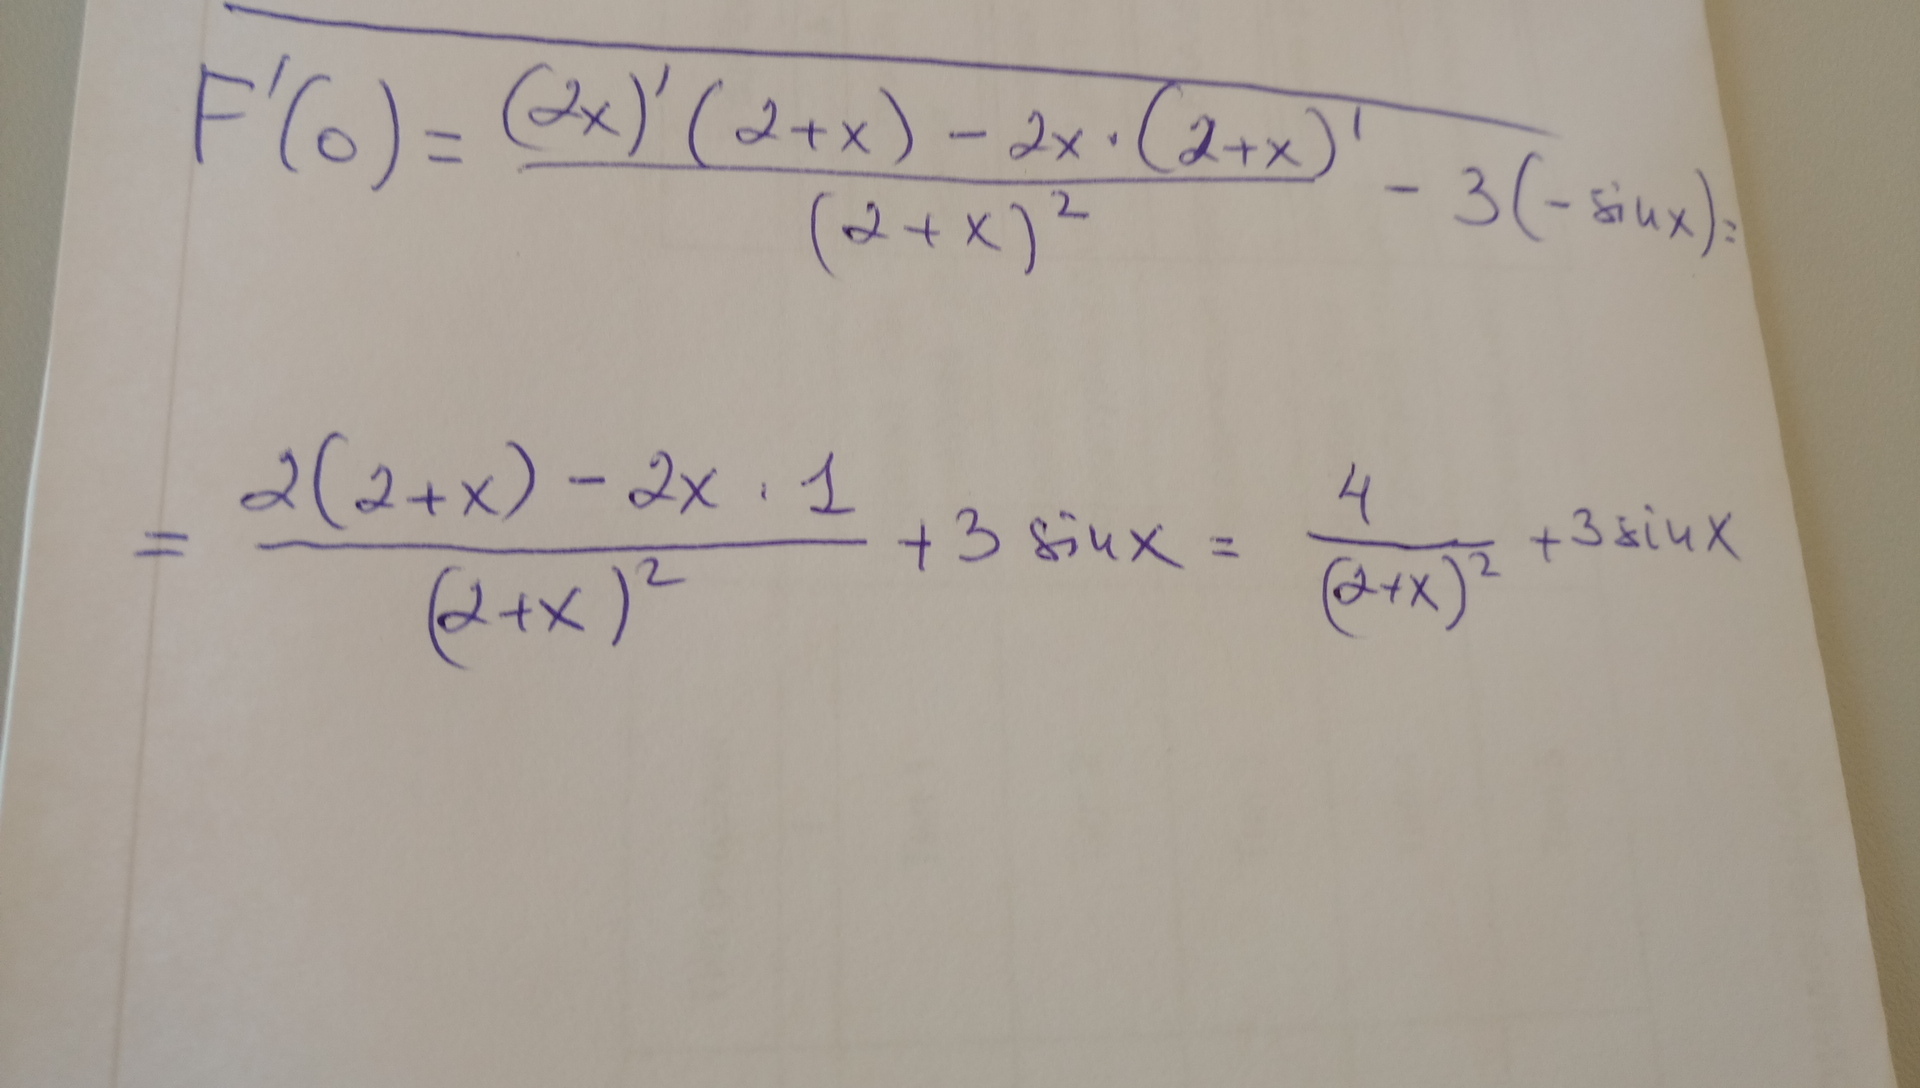 F'(0) = ((2x)'(2+x) - 2x·(2+x)')/(2+x)² - 3(-sinx) =
= (2(2+x) - 2x·1)/(2+x)² + 3 sinx = 4/(2+x)² + 3 sinx